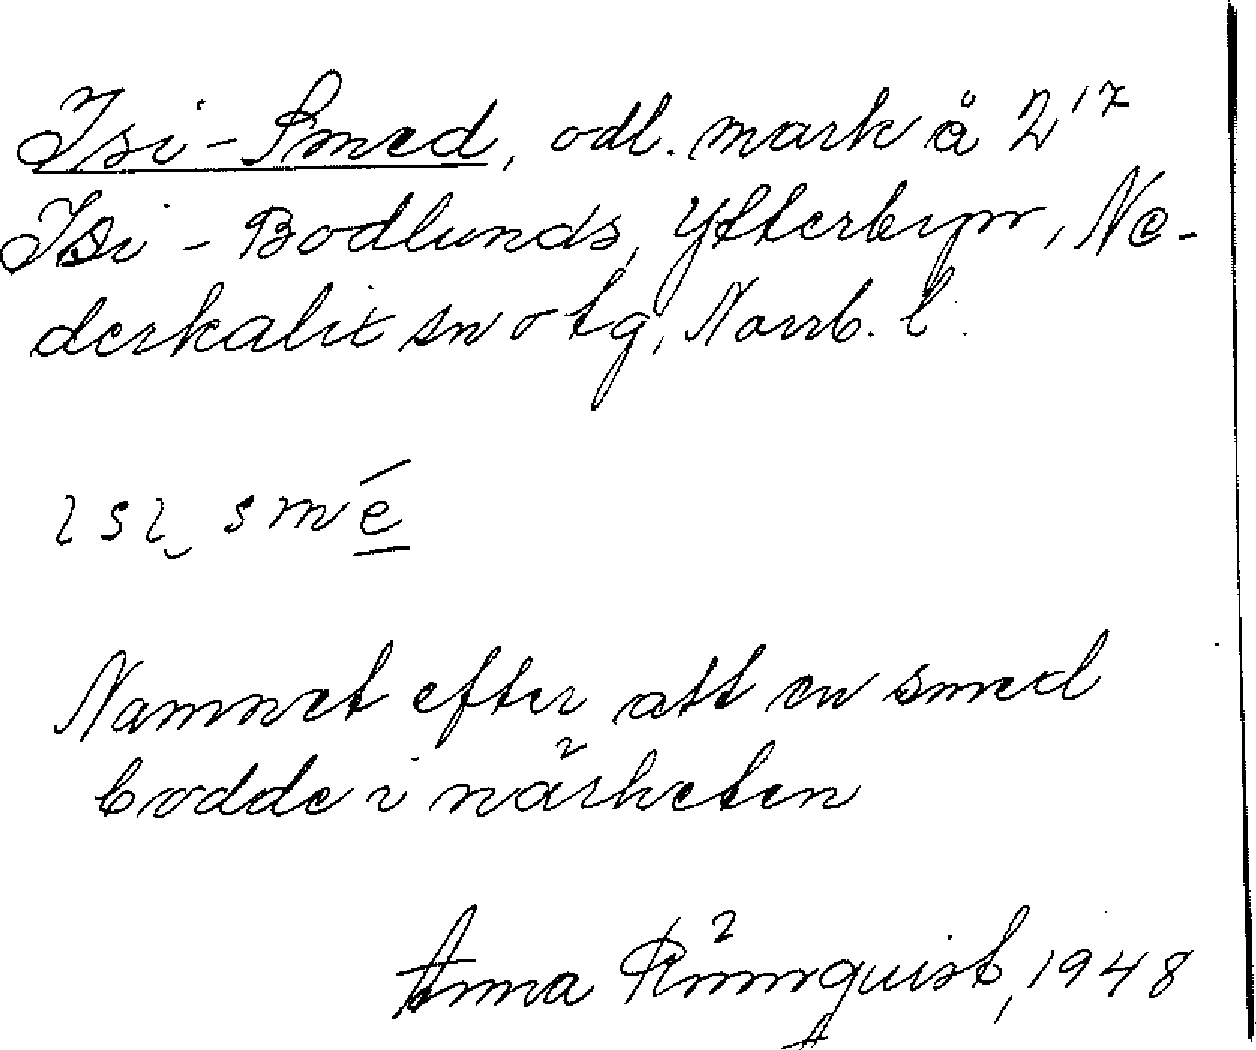 Isi-Smed, odl. mark å 2¹⁷
Isi-Bodlunds, Ytterbyn, Ne-
derkalix sn o tg, Norrb. l.
ısı smé
Namnet efter att en smed
bodde i närheten
Anna Rönnquist, 1948